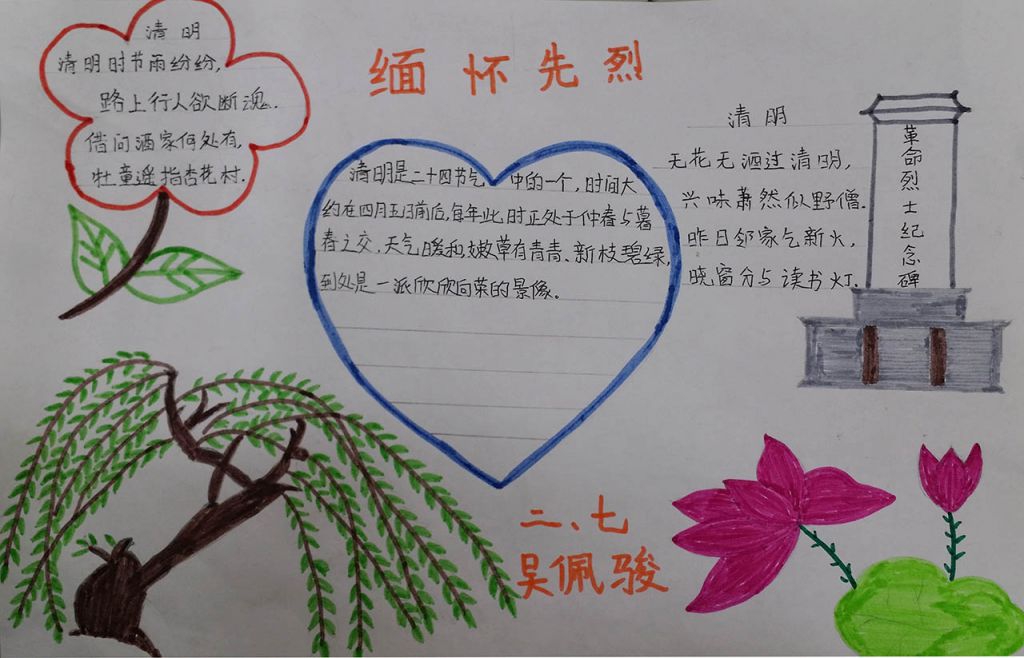 缅怀先烈
清明
清明时节雨纷纷,
路上行人欲断魂.
借问酒家何处有,
牡童遥指杏花村.
清明是二十四节气 中的一个,时间大
约在四月五日前后,每年此时正处于仲春与暮
春之交,天气暖和,嫩草有青青、新枝碧绿,
到处是一派欣欣向荣的景像。
清明
无花无酒过清明,
兴味萧然似野僧.
昨日邻家乞新火,
晓窗分与读书灯.
革命烈士纪念碑
二、七
吴佩骏